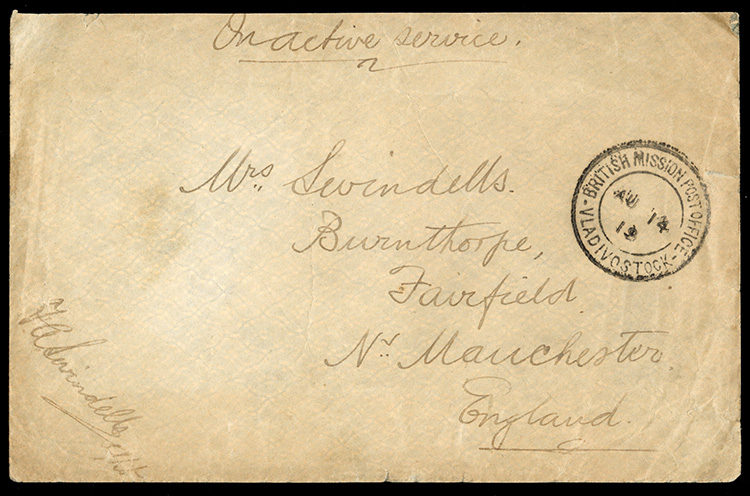 On active service.
Mrs. Swindells.
Burnthorpe,
Fairfield.
Nr. Manchester.
England.
BRITISH MISSION POST OFFICE
VLADIVOSTOCK
AU 14
19
Swindells